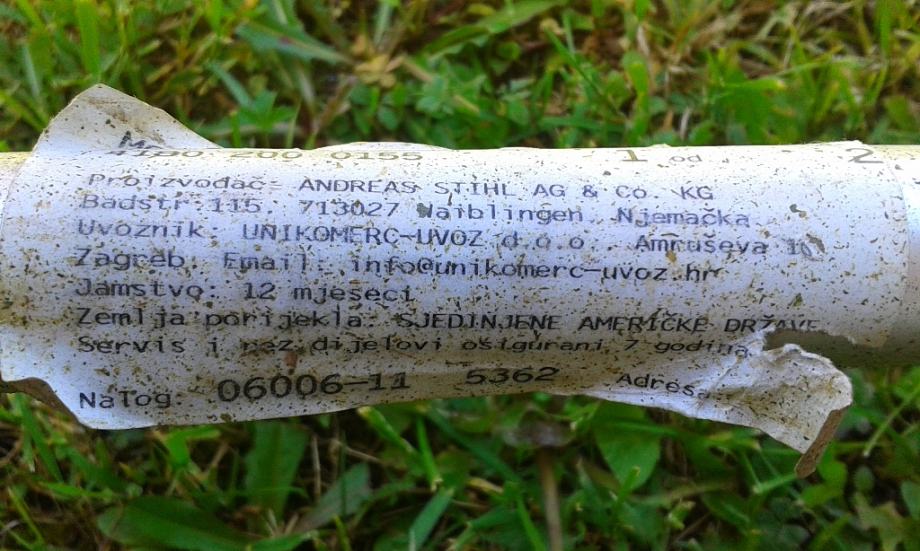 4180 200 0155 1 od 2
Proizvođač: ANDREAS STIHL AG & Co KG
Badstr.115, 713027 Waiblingen, Njemačka
Uvoznik: UNIKOMERC-UVOZ d.o.o., Amruševa
Zagreb, Email: info@unikomerc-uvoz.hr
Jamstvo: 12 mjeseci
Zemlja porijekla: SJEDINJENE AMERIČKE DRŽAVE
Servis i rez.dijelovi osigurani 7 godina
Nalog: 06006-11 5362 Adresa: